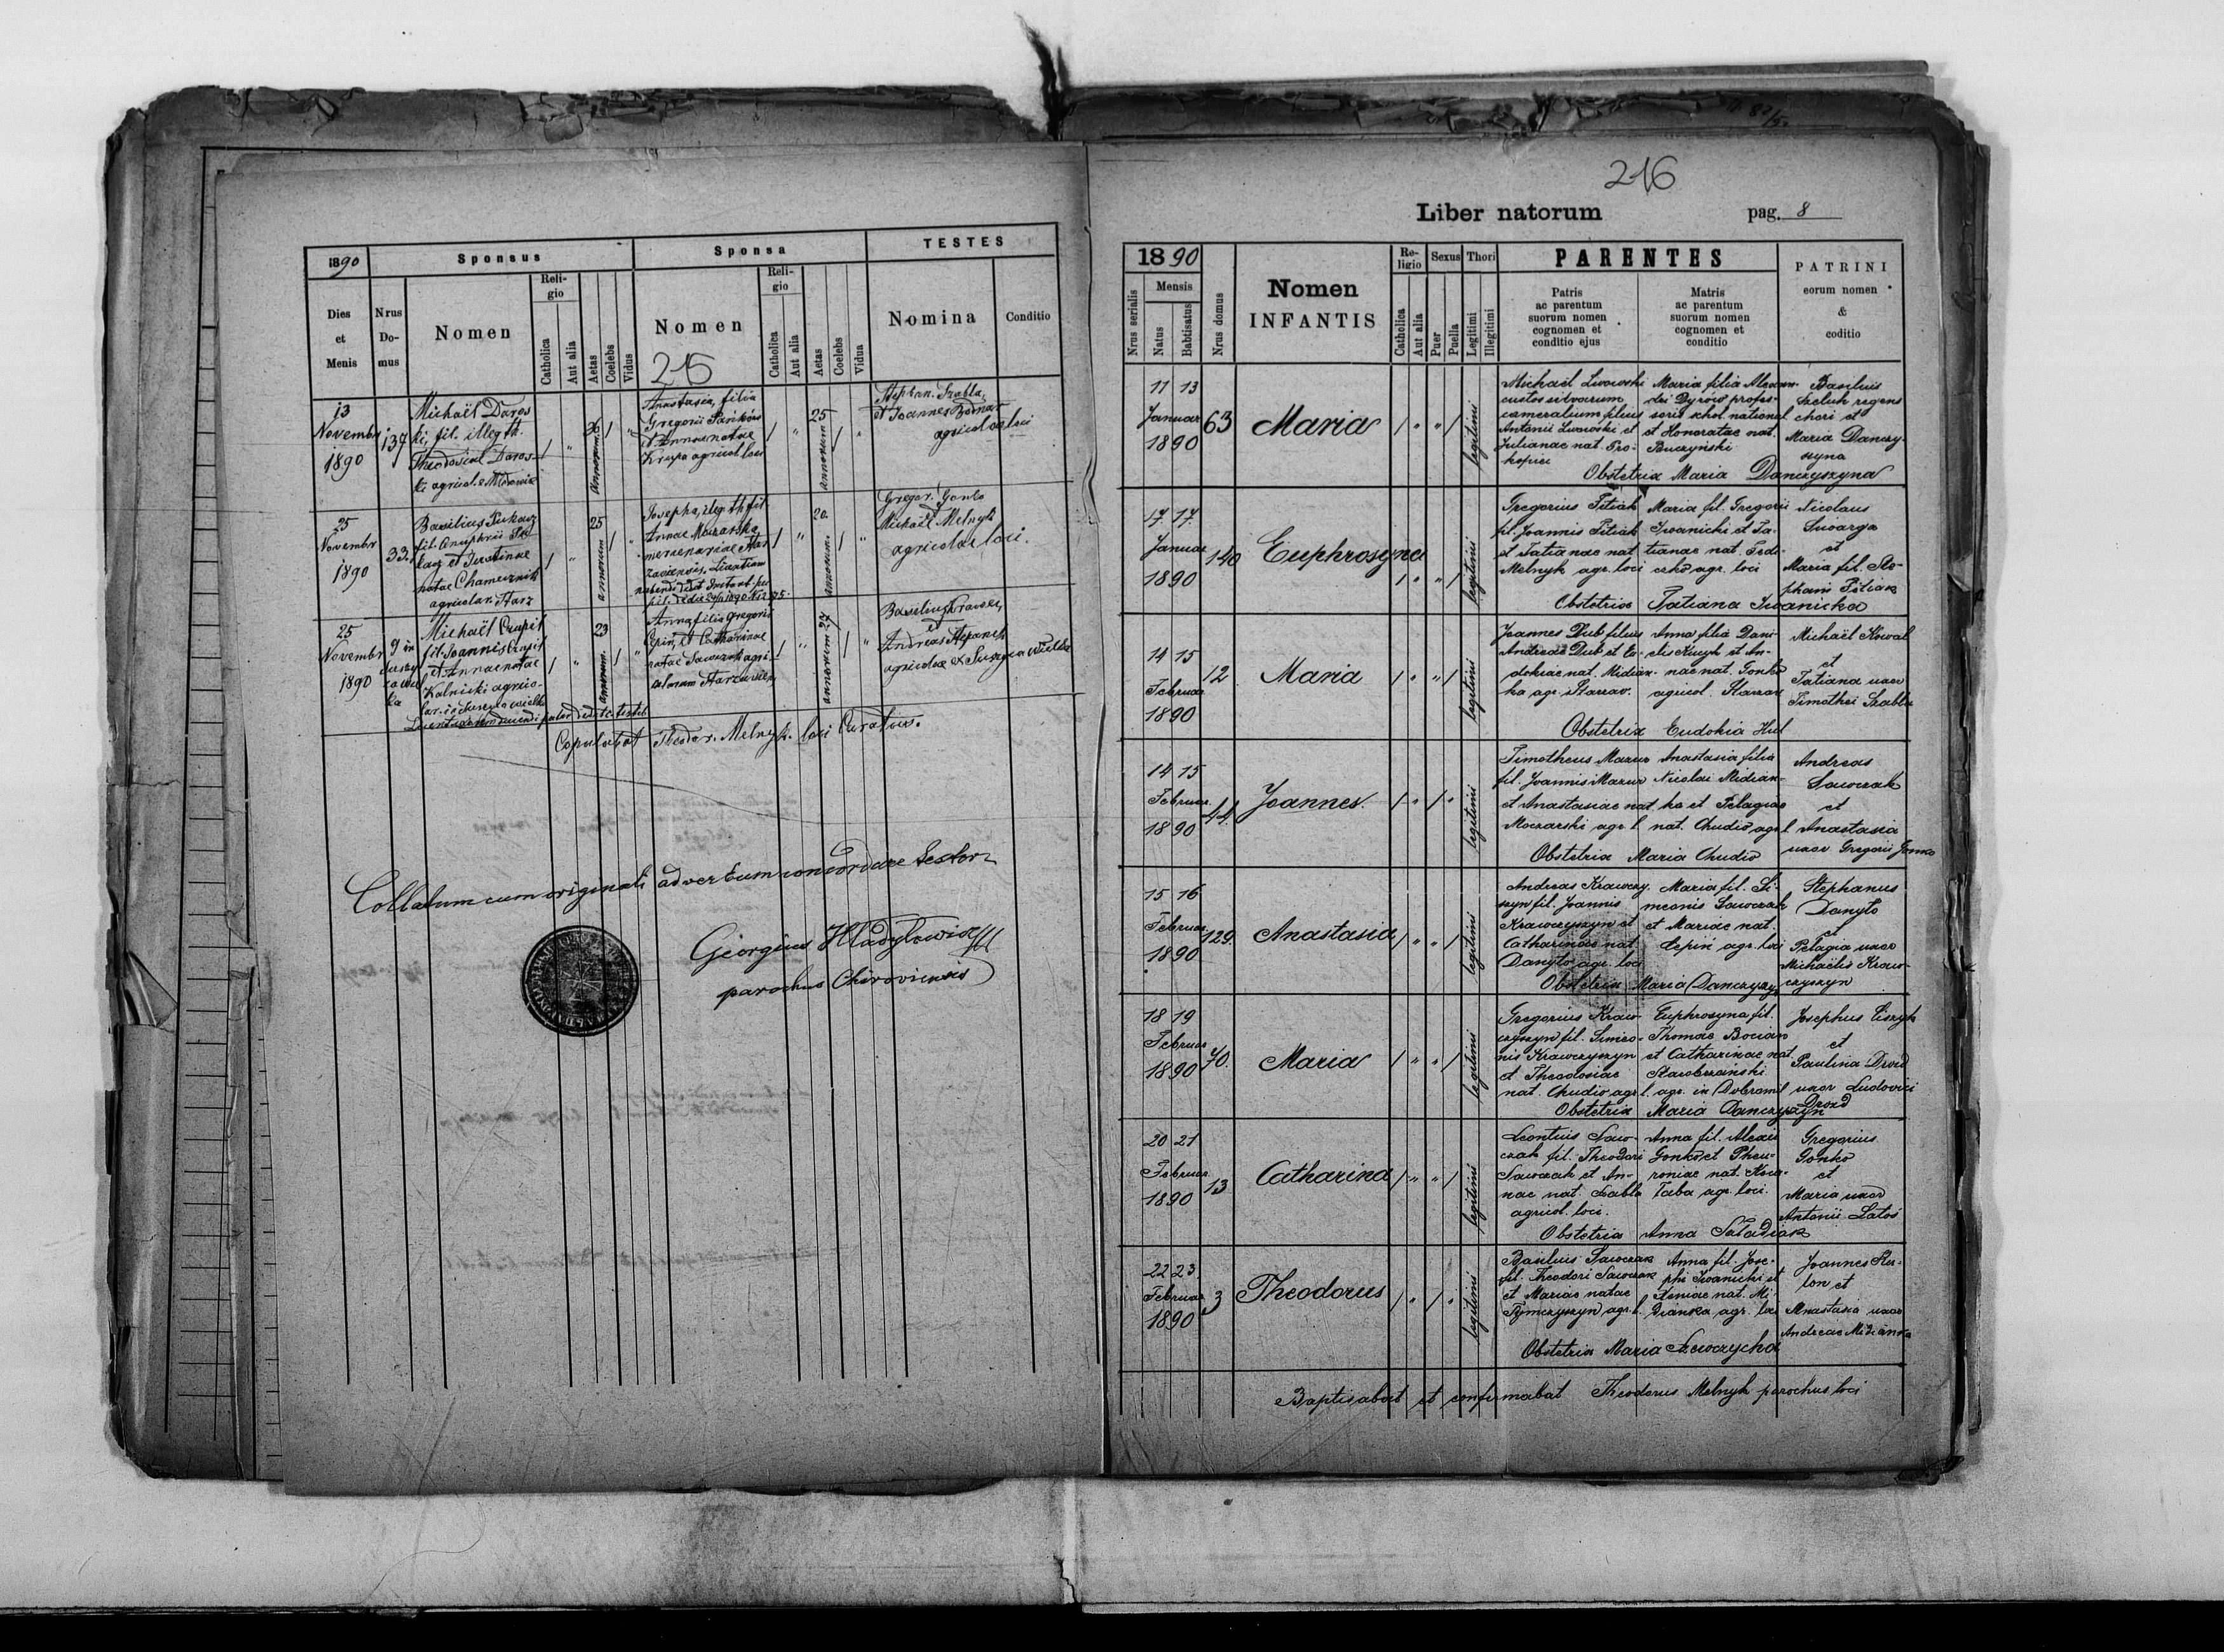 1890
Sponsus
Sponsa
TESTES
Dies et Menis
Nrus Domus
Nomen
Religio
Catholica
Aut alia
Aetas
Coelebs
Vidus
Nomen
Religio
Catholica
Aut alia
Aetas
Coelebs
Vidua
Nomina
Conditio
215
13
Novembr
1890
137
Michaël Daros
ki, fil. illeg th.
Theodosiae Daros
ki agricol.
26
annorum
Anastasia, filia
Gregorii
et Annae natae
Krupa agricol loci
25
annorum
Stephan. Szabla,
et Joannes Bodnar
agricolae loci
25
Novembr
1890
33.
Basilius Pukacz
fil. Onuphrii
natae
agricolar. Starz
25
annorum
Josepha, illeg th fil.
Annae
20.
annorum.
Gregor. Gonko
et
Michaël Melnyk
agricolae loci.
25
Novembr
1890
9 in
Michaël Czupil
fil. Joannis Czupil
et Annae natae
Kalnicki agrico-
lar.
23
annorum.
Anna, filia Gregorii
Cepin, et Catharinae
natae Sawczak agri-
colarum
24
annorum
Basilius
et
Andreas Stepanek
agricolae
Copulabat Theodor. Melnyk. loci Curatus.
Collatum cum originali ad verbum concordare testor
Georgius Hladylowicz
parochus Chiroviensis
216
Liber natorum pag. 8
1890
Nrus serialis
Mensis
Natus
Babtisatus
Nrus domus
Nomen
INFANTIS
Religio
Catholica
Aut alia
Sexus
Puer
Puella
Thori
Legitimi
Illegitimi
PARENTES
Patris
ac parentum
suorum nomen
cognomen et
conditio ejus
Matris
ac parentum
suorum nomen
cognomen et
conditio
PATRINI
eorum nomen
&
coditio
11 13
Januar
1890
63
Maria
legitimi
Michaël Lwowski
custos silvarum
cameralium filius
Antonii Lwowski et
Julianae nat. Pro-
kopiu
Maria filia Alexan-
dri Dyrów profes-
soris schol. national
et Honoratae nat.
Buczyński
Basilius
regens
chori et
Maria Danczy-
szyna
Obstetrix Maria Danczyszyna
17 17
Januar
1890
140
Euphrosyna
legitimi
Gregorius Pitiak
fil. Joannis Pitiak
et Tatianae nat
Melnyk agr. loci
Maria fil. Gregorii
Iwanicki et Ta-
tianae nat. Fedi-
agr. loci
Nicolaus
et
Maria fil. Ste-
phani Pitiak
Obstetrix Tatiana Iwanicka
14 15
Februar
1890
12
Maria
legitimi
Joannes Dub filius
Andreae Dub et Eu-
dokiae nat. Midian-
ka agr. Starzav.
Anna filia Dani-
elis et An-
nae nat. Gonko
agricol. Starzav
Michaël Kowal
et
Tatiana uxor
Timothei Szabla
Obstetrix Eudokia Hul
14 15
Februar
1890
44
Joannes.
legitimi
Timotheus Mazur
fil. Joannis Mazur
et Anastasiae nat
Moczarski agr. l
Anastasia filia
Nicolai Midian-
ka et Pelagiae
nat. Chudio agr l
Andreas
Sawczak
et
Anastasia
uxor Gregorii Gonko
Obstetrix Maria Chudio
15 16
Februar
1890
129.
Anastasia
legitimi
Andreas Krawczy-
szyn fil. Joannis
Krawczyszyn et
Catharinae nat
Danylo agr. loci
Maria fil. Si-
meonis Sawczak
et Mariae nat.
Cepin agr. loci
Stephanus
Danylo
et
Pelagia uxor
Michaëlis Kraw-
czyszyn
Obstetrix Maria Danczyszyn
18 19
Februar
1890
70.
Maria
legitimi
Gregorius Kraw-
czyszyn fil. Simeo-
nis Krawczyszyn
et Theodosiae
nat. Chudio agr l.
Euphrosyna fil.
Thomae
et Catharinae nat.
agr. in Dobromil
Josephus
et
Paulina Drozd
uxor Ludovici
Drozd
Obstetrix Maria Danczyszyn
20 21
Februar
1890
13
Catharina
legitimi
Leontius Saw-
czak fil. Theodori
Sawczak et An-
nae nat. Szabla
agricol. loci.
Anna fil. Alexii
Gonko et Pheu-
roniae nat. Koca-
Taba agr. loci.
Gregorius
Gonko
et
Maria uxor
Antonii Latoś
Obstetrix Anna Saladiak
22 23
Februar
1890
3
Theodorus
legitimi
Basilius Sawczak
fil. Theodori Sawczak
et Mariae natae
Tymczyszyn agr. l.
Anna fil. Jose-
phi Iwanicki et
Xeniae nat. Mi-
dianka agr. loci
Joannes
et
Anastasia uxor
Andreae Midianka
Obstetrix Maria Sawczycha
Baptisabat et confirmabat Theodorus Melnyk parochus loci